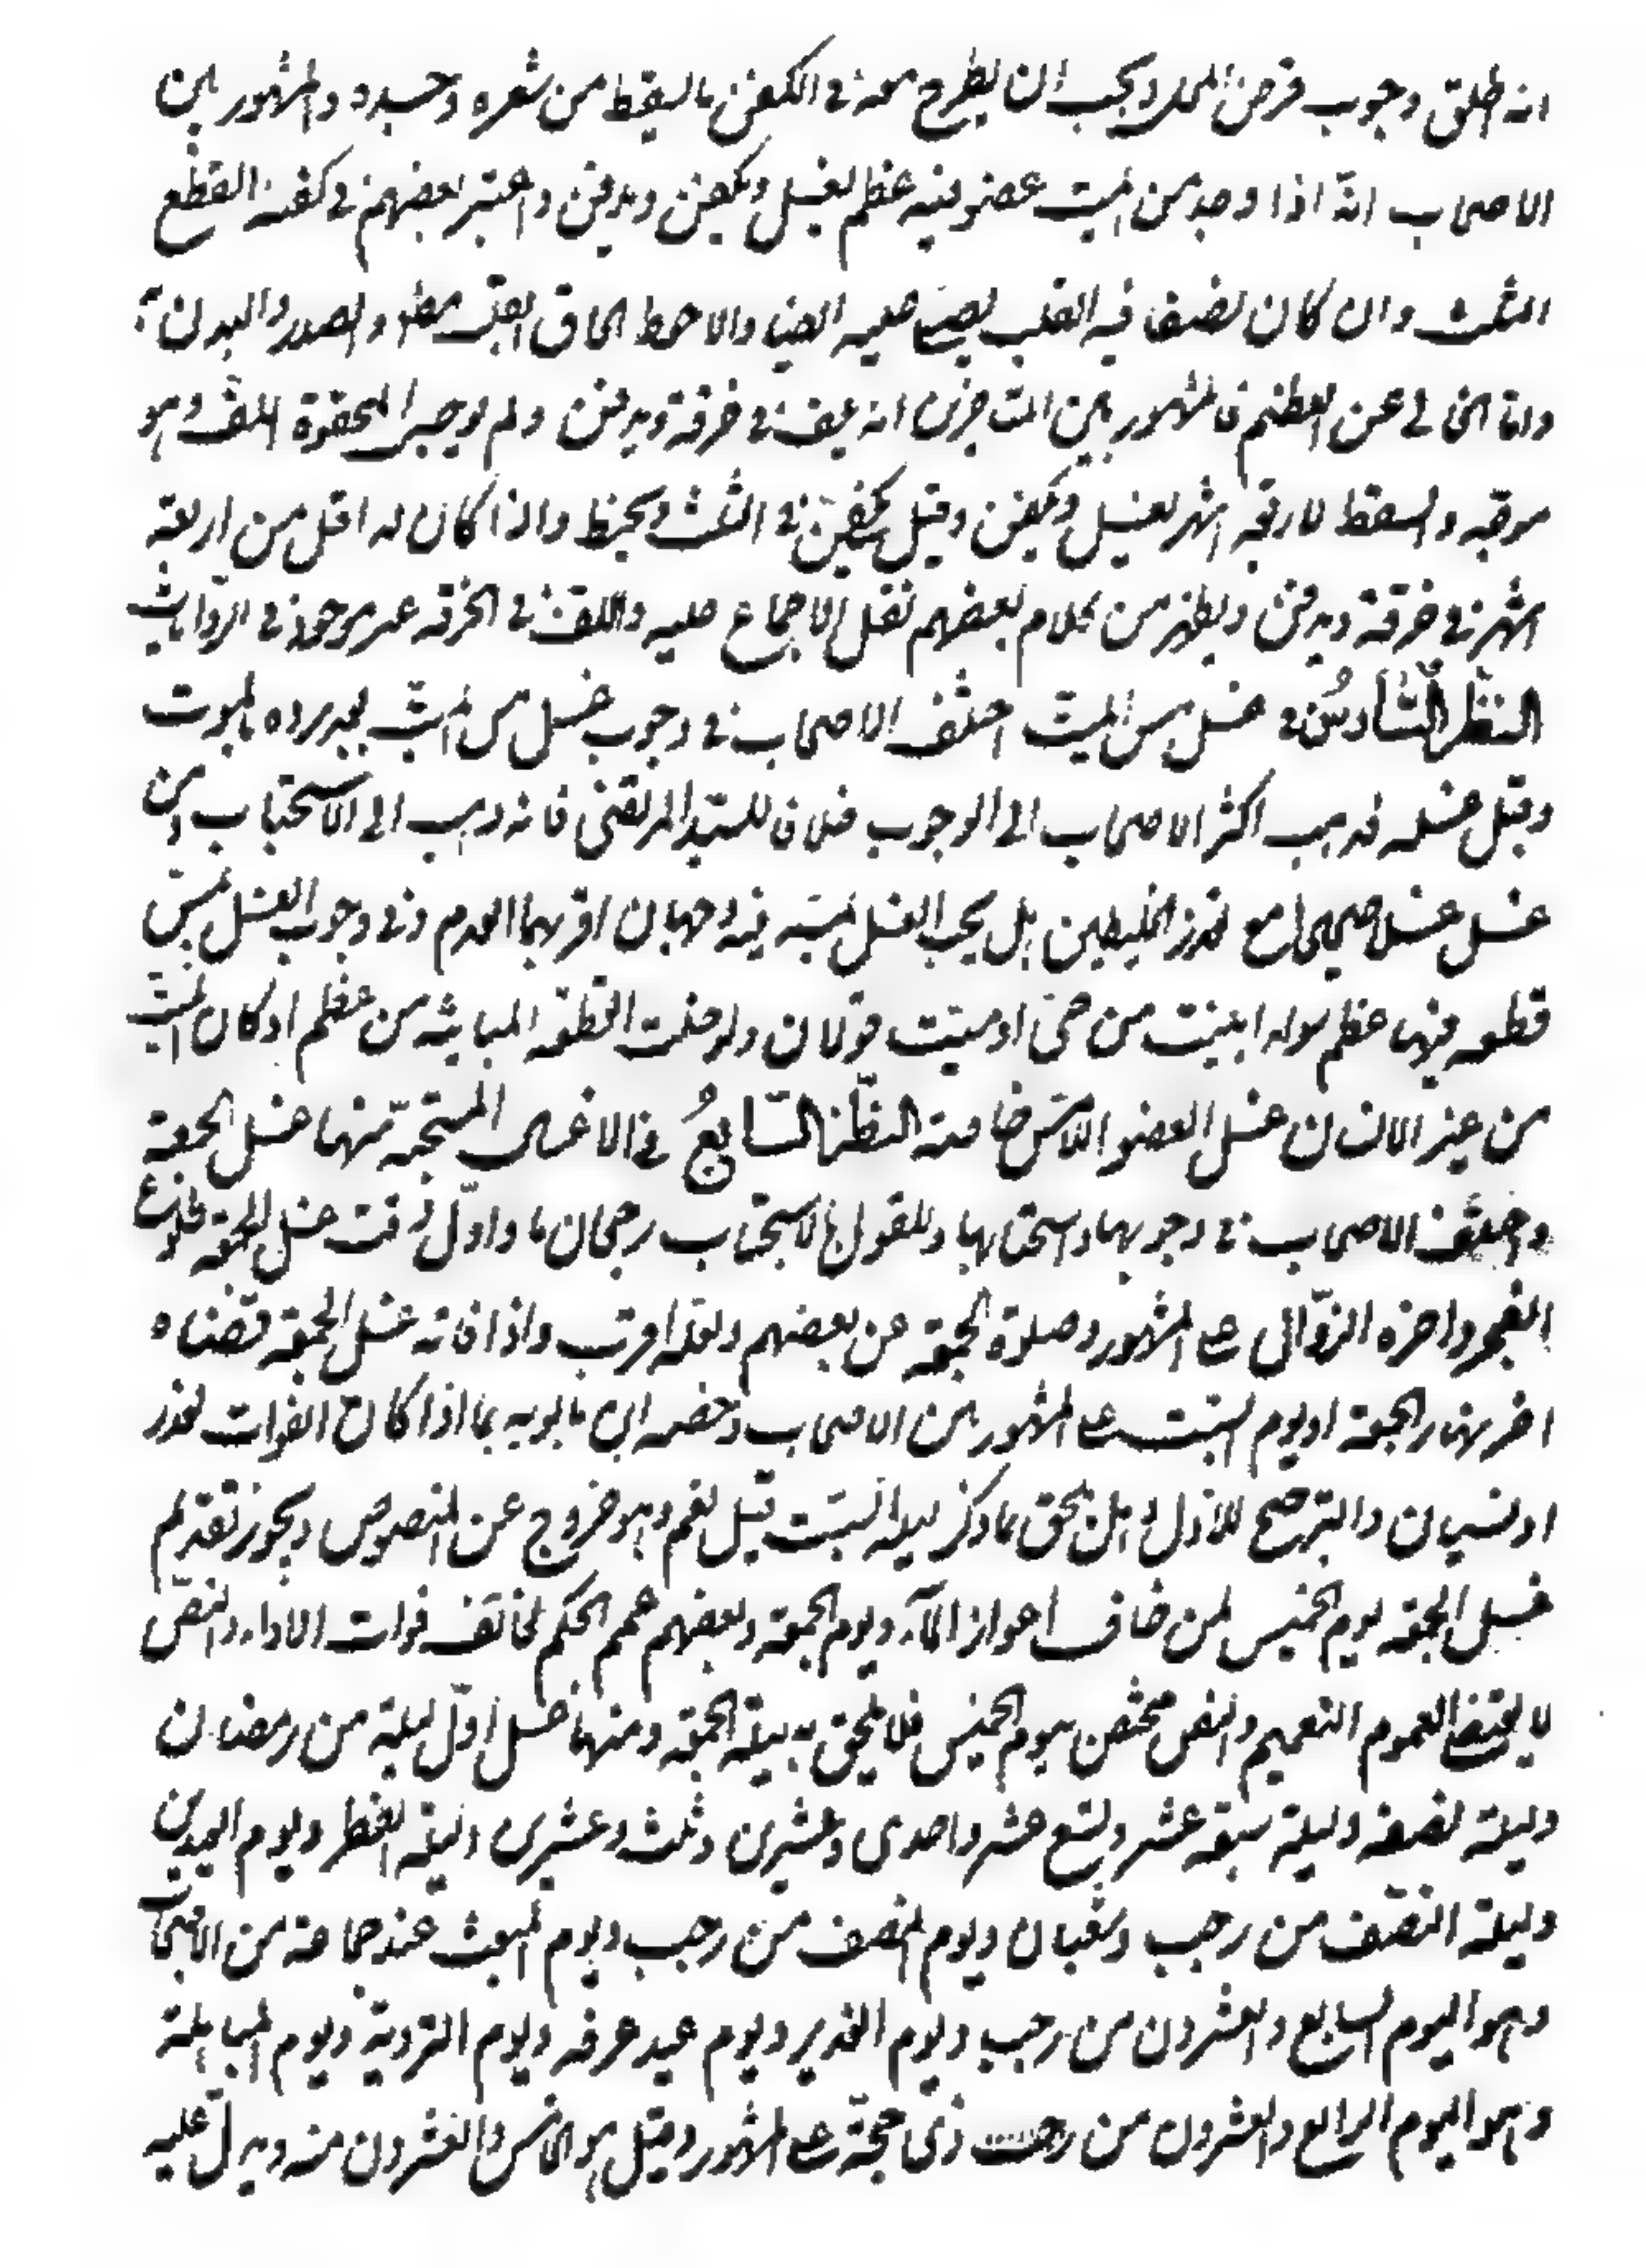 انه اطلق وجوب قرض المحل ويجب ان يطرح معه في الكفن ما يسقط من شعره وجسده والمشهور بين
الاصحاب انه اذا وجد من الميت عضو فيه عظم يغسل ويكفن ويدفن واعتبر بعضهم في كفنه القطع
الثلث وان كان نصفا فيه القلب يصلى عليه ايضا والاحوط الحاق القلب مط والصدر والبدن به
واما الخالي عن العظم فالمشهور بين المتاخرين انه يلف في خرقة ويدفن ولم يوجب المحقق اللف وهو
موجه والسقط لاربعة اشهر يغسل ويكفن وقيل يكفن في الثلث ويحنط واذا كان له اقل من اربعة
اشهر في خرقة ويدفن ويظهر من كلام بعضهم نقل الاجماع عليه واللف في الخرقه غير موجود في الروايات
النظر السادس في غسل مس الميت اختلف الاصحاب في وجوب غسل مس الميت بعد برده بالموت
وقبل غسله فذهب اكثر الاصحاب الى الوجوب خلافا للسيد المرتضى فانه ذهب الى الاستحباب ومن
غسل غسلا صحيحا مع تعذر الخليطين هل يجب الغسل بمسه فيه وجهان اقربهما العدم وفي وجوب الغسل بمس
قطعه فيها عظم سواء ابينت من حي او ميت قولان ولو خلت القطعه المباينه من عظم او كان الميت
من غير الانسان غسل العضو اللامس خاصة النظر السابع في الاغسال المستحبه منها غسل الجمعة
واختلف الاصحاب في وجوبها واستحبابها وللقول بالاستحباب رجحان ما واول وقت غسل الجمعه طلوع
الفجر واخره الزوال على المشهور وصلوة الجمعه عن بعضهم ولعله اقرب واذا فاته غسل الجمعه قضاه
اخر نهار الجمعة او يوم السبت على المشهور بين الاصحاب وخصه ابن بابويه بما اذا كان الفوات لعذر
او نسيان والترجيح للاول وهل يلحق بما ذكر ليلة السبت قيل نعم وهو خروج عن المنصوص ويجوز تقديم
غسل الجمعه يوم الخميس لمن خاف اعواز الماء يوم الجمعه وبعضهم عمم الحكم لخائف فوات الاداء والنص
لا يقتضي العموم التعميم والنص مختص بيوم الخميس فلا يلحق به ليلة الجمعه ومنها غسل اول ليلة من رمضان
وليلة نصفه وليلة سبعه عشر وتسع عشر واحدى وعشرين وثلث وعشرين وليلة الفطر ويوم العيدين
وليلة النصف من رجب وشعبان ويوم النصف من رجب ويوم المبعث عند جماعة من الاصحاب
وهو اليوم السابع والعشرون من رجب ويوم الغدير ويوم عيد عرفه ويوم التروية ويوم المباهلة
وهو اليوم الرابع والعشرون من رجب ذي حجة على المشهور وقيل هو الخامس والعشرون منه ويدل عليه